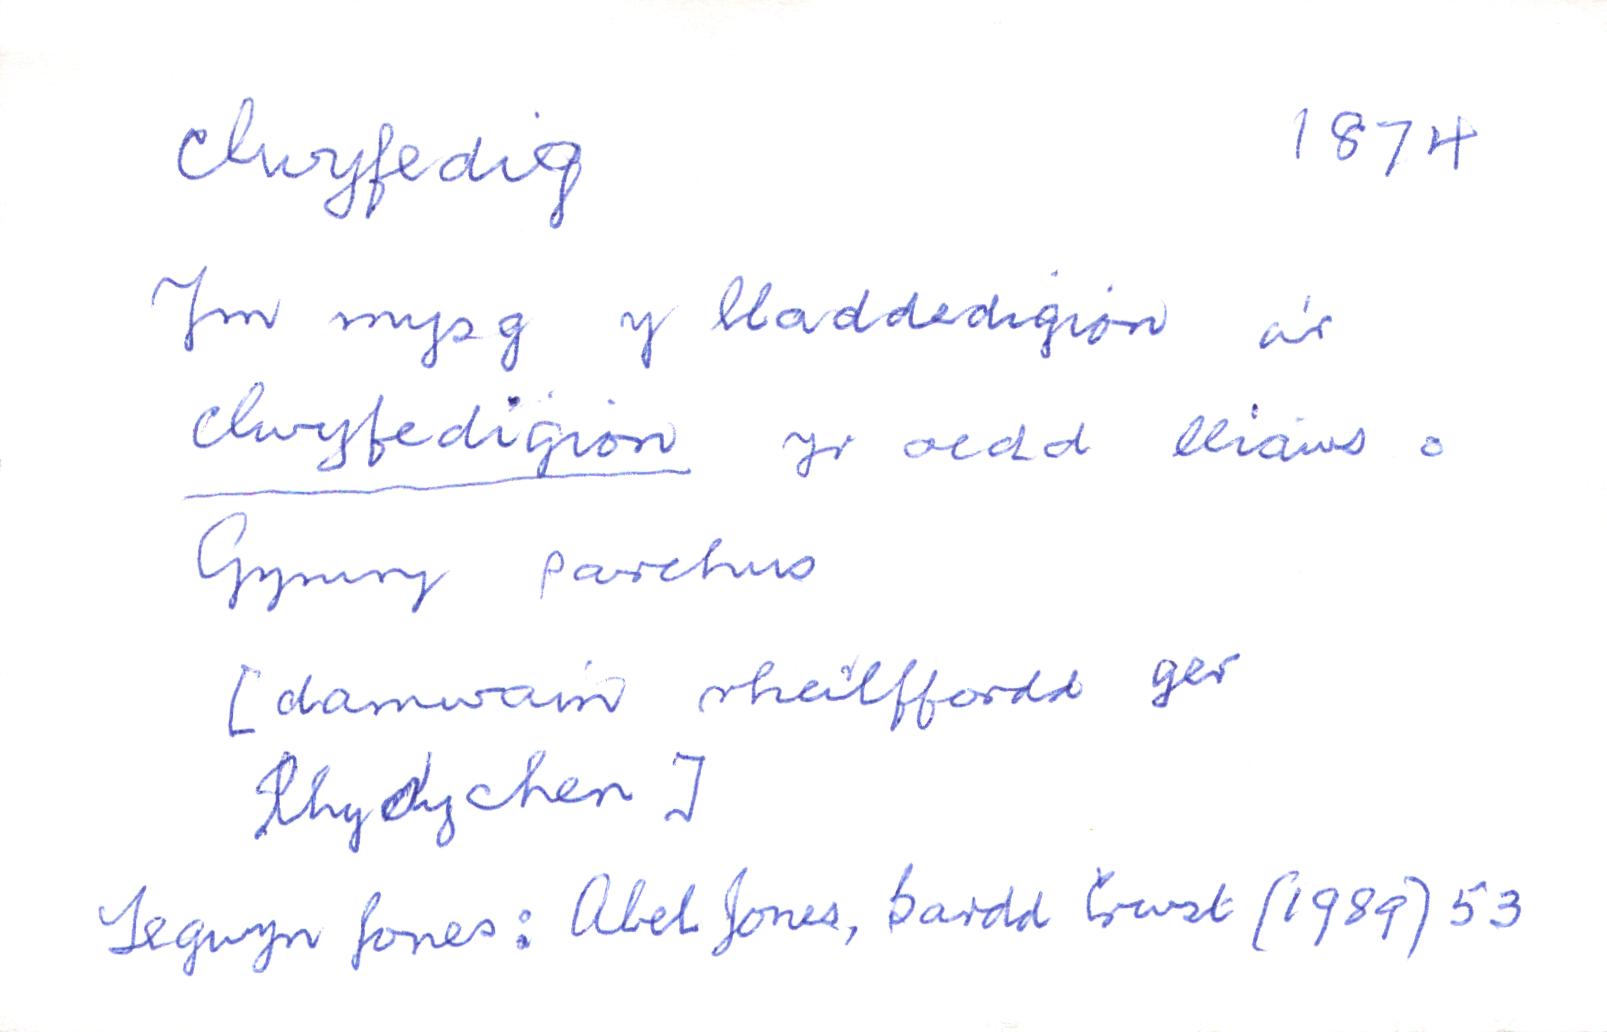 clwyfedig 1874
Ym mysg y lladdedigion a'r
clwyfedigion yr oedd lliaws o
Gymry parchus
[damwain rheilffordd ger
Rhydychen]
Tegwyn Jones: Abel Jones, Bardd Crwst (1989) 53